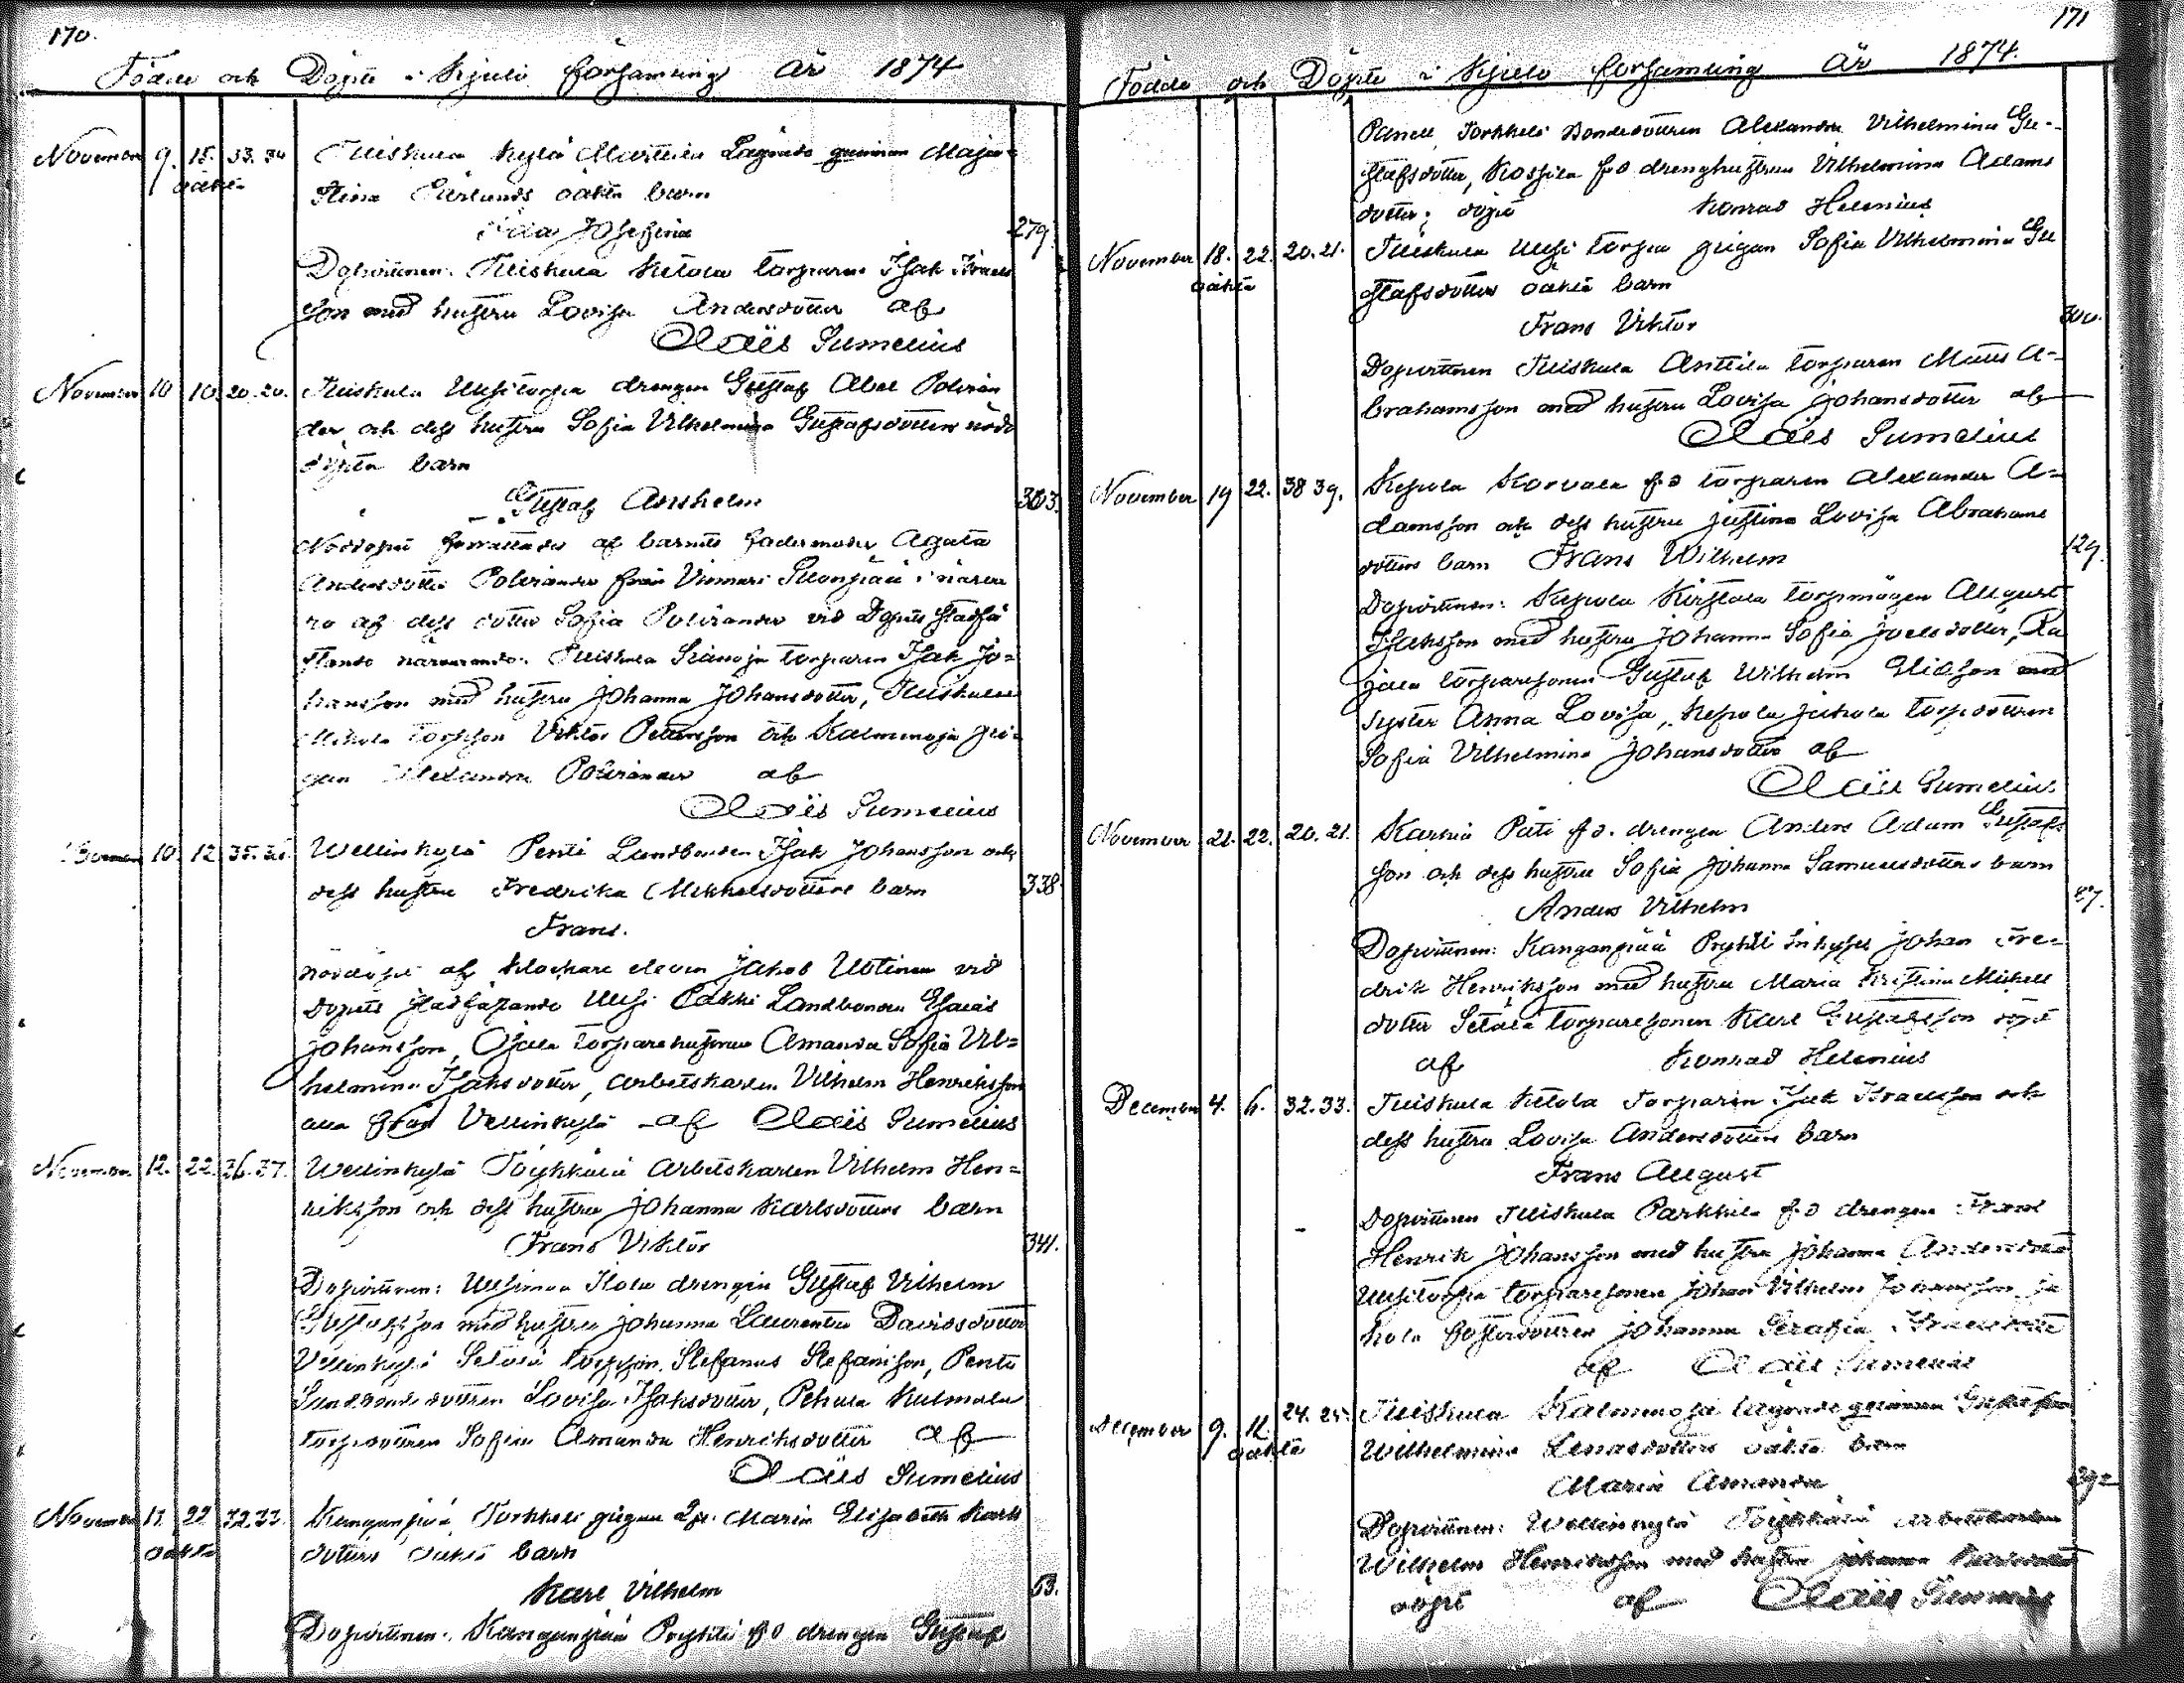 170.
Födde och Döpte i Kjulo församling År 1874
November 9. 15. 33. 34 Tuiskula kylä Marttila Lägrade qvinnan Maja
oäkta
Stina Färlunds oäkta barn
Ida Josefina
279
Dopvittnen: Tuiskula Ketola torparen Isak Israels
son med hustru Lovisa Andersdotter af
Claës Sumelius
November 10 10. 20. 20. Tuiskula Uusitorpa drengen Gustaf Abel Polvian
der och dess hustru Sofia Vilhelmina Gustafsdotters nöd
döpta barn
Gustaf Anshelm
303.
Nöddopet förrättades af barnets fadermoder Agata
Andersdotter från i närva
ro af dess dotter Sofia vid Dopets stadfä
stande närvarande: Tuiskula torparen Isak Jo=
hansson med hustru Johanna Johansdotter, Tuiskula
torpson Viktor Pettersson och Kalminoja pi-
gan Alexandra af
Claës Sumelius
November 10. 12 35. Wellinkylä Pentti Landbonden Isak Johansson och
dess hustru Fredrika Mikkelsdotters barn
338.
Frans.
nöddöpt af klockare eleven Jakob Uotinen vid
dopets stadfästande Uusi Landbonden Esaias
Johansson, Ojala torparehustrun Amanda Sofia Vil=
helmina Isaksdotter, arbetskarlen Vilhelm Henriksson
alla från Vellinkylä af Claës Sumelius
November 12. 22. 36. 37. Wellinkylä Töykkälä arbetskarlen Vilhelm Hen=
riksson och dess hustru Johanna Karlsdotters barn
Frans Viktor
341.
Dopvittnen: Uusimaa Ilola drengen Gustaf Vilhelm
Gustafsson med hustru Johanna Laurentia Davidsdotter
Vellinkylä Setälä torpson Stefanus Stefansson, Pentti
Landbondedottren Lovisa Isaksdotter, Pehula Kulmala
torpdottren Sofia Amanda Henriksdotter af
Claës Sumelius
November 22 32. 33. Kanganpää Torkkeli pigan Maria Elisabeth Karls
oäkta
dotters oäkta barn
Karl Vilhelm
53.
Dopvittnen: Kanganpää Pryhtti f.d. drengen Gustaf
171
Födde och Döpte i Kjulo församling År 1874.
Torkkeli Bondedottren Alexandra Vilhelmina Gu-
stafsdotter, f.d drenghustrun Vilhelmina Adams
dotter; döpt Konrad Helenius
November 18. 22. 20. 21. Tuiskula Uusi torpa pigan Sofia Vilhelmina Gu
oäkta
stafsdotters oäkta barn
Frans Viktor
300.
Dopvittnen Tuiskula Anttila torparen Matts A-
brahamsson med hustru Lovisa Johansdotter af
Claës Sumelius
November 19 22. 38 39. Kepola Korvala f.d torparen Alexander A=
damsson och dess hustru Justina Lovisa Abrahams
dotters barn Frans Wilhelm
129.
Dopvittnen: Kepola Kirstala torpmågen August
Isaksson med hustru Johanna Sofia Joelsdotter, Ra
jala torparesonen Gustaf Wilhelm Eliasson med
syster Anna Lovisa, Kepola Jukola torpdottren
Sofia Vilhelmina Johansdotter af
Claës Sumelius.
November 21. 22. 20. 21. Karhia Päti f.d. drengen Anders Adam Gustafs
son och dess hustru Sofia Johanna Samuelsdotters barn
87.
Anders Vilhelm
Dopvittnen: Kanganpää Pryhtti inhyses Johan Fre-
drik Henriksson med hustru Maria Kristina Mickels
dotter Setälä torparesonen Karl Gustafsson döpt
af Konrad Helenius
December 4. 6. 32. 33. Tuiskula Ketola Torparen Isak Israelsson och
dess hustru Lovisa Andersdotters barn
Frans August
Dopvittnen Tuiskula Parkkila f.d drengen Frans
Henrik Johansson med hustru Johanna Andersdotter
Uusitorpa torparesonen Johan Vilhelm Johansson, Ju
kola fosterdottren Johanna Serafia Israelsdotter
af Claës Sumelius
December 9. 12. 24. 25. Tuiskula Kalminoja lägrade qvinnan Gustafva
oäkta
Wilhelmina Lenasdotters oäkta barn
Maria Amanda
292
Dopvittnen: Wellinkylä Töykkälä arbetskarlen
Wilhelm Henriksson med hustru Johanna Karlsdotter
döpt af Claës Sumelius